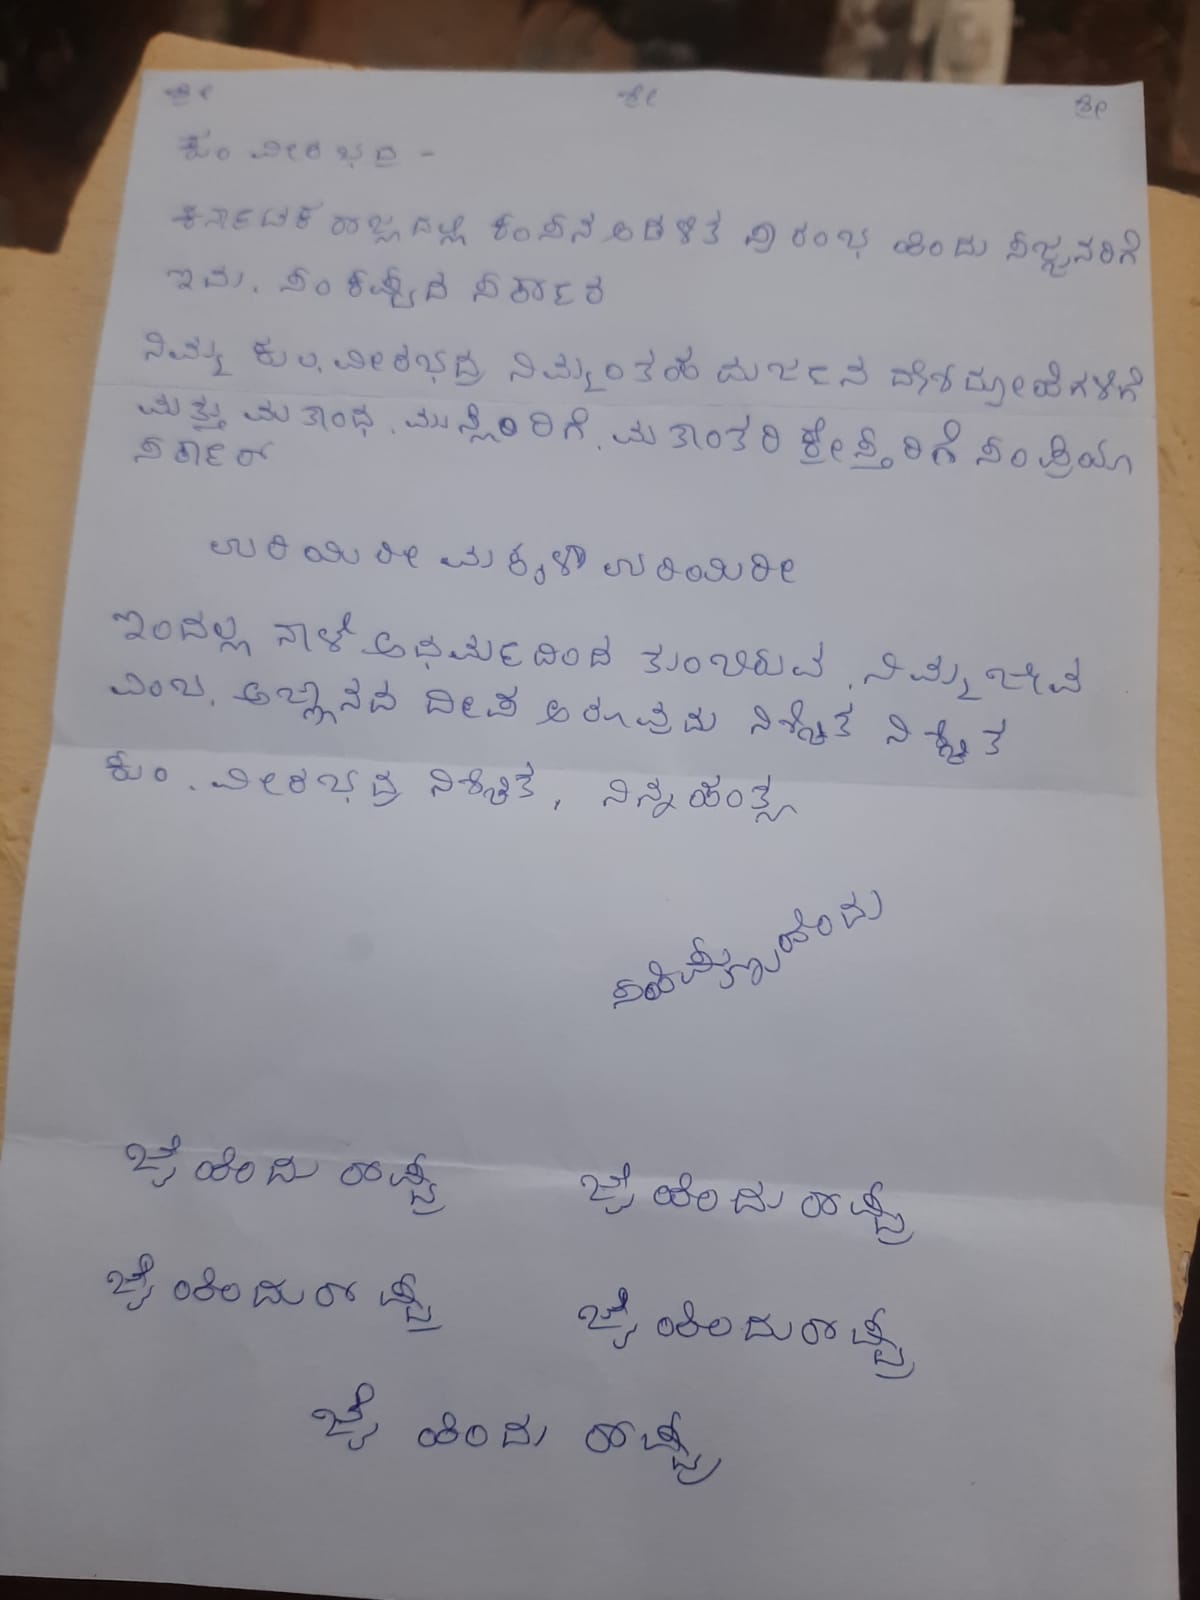 ಶ್ರೀ ಶ್ರೀ ಶ್ರೀ
ಕುಂ ವೀರಭದ್ರ -
ಕರ್ನಾಟಕ ರಾಜ್ಯದಲ್ಲಿ ಕಂಸನ ಆಡಳಿತ ಪ್ರಾರಂಭ ಹಿಂದು ಸಜ್ಜನರಿಗೆ
ಇದು. ಸಂಕಷ್ಟದ ಸರ್ಕಾರ
ನಿಮ್ಮ ಕುಂ. ವೀರಭದ್ರ ನಿಮ್ಮಂತಹ ದುರ್ಜನ ದೇಶದ್ರೋಹಿಗಳಿಗೆ
ಮತ್ತು ಮತಾಂಧ. ಮುಸ್ಲಿಂರಿಗೆ. ಮತಾಂತರಿ ಕ್ರೇಸ್ತರಿಗೆ ಸಂಪ್ರಿಯಾ
ಸರ್ಕಾರ್
ಉರಿಯಿರೀ ಮಕ್ಕಳಾ ಉರಿಯಿರೀ
ಇಂದಲ್ಲ ನಾಳೆ ಅಧರ್ಮದಿಂದ ತುಂಬಿರುವ. ನಿಮ್ಮ ಜೀವ
ಎಂಬ. ಅಜ್ಞಾನದ ದೀಪ ಆರೂವುದು ನಿಶ್ಚಿತ ನಿಶ್ಚಿತ
ಕುಂ. ವೀರಭದ್ರ ನಿಶ್ಚಿತ, ನಿನ್ನ ಹಂತ್ಯ
ಸಹಿಷ್ಣು ಹಿಂದು
ಜೈ ಹಿಂದು ರಾಷ್ಟ್ರ ಜೈ ಹಿಂದು ರಾಷ್ಟ್ರ
ಜೈ ಹಿಂದು ರಾಷ್ಟ್ರ ಜೈ ಹಿಂದು ರಾಷ್ಟ್ರ
ಜೈ ಹಿಂದು ರಾಷ್ಟ್ರ